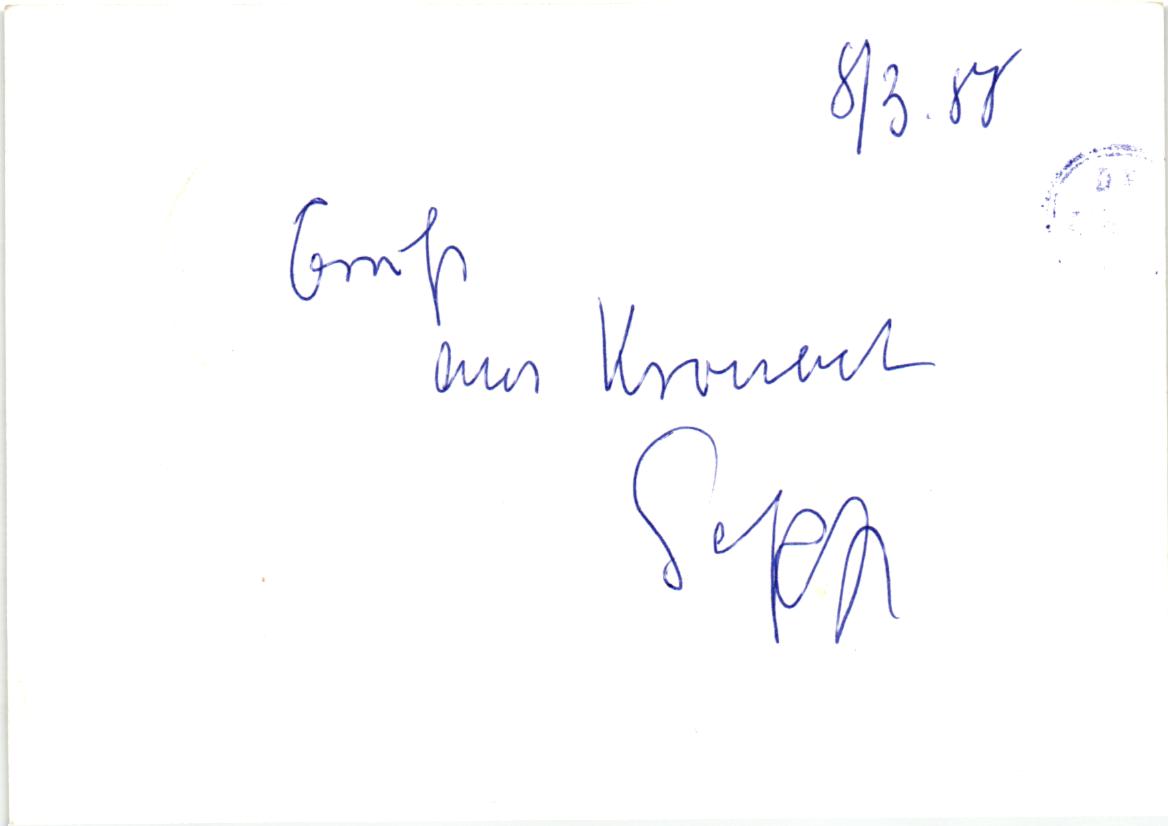 8/3.88
Gruß
aus Kronach
Sepp